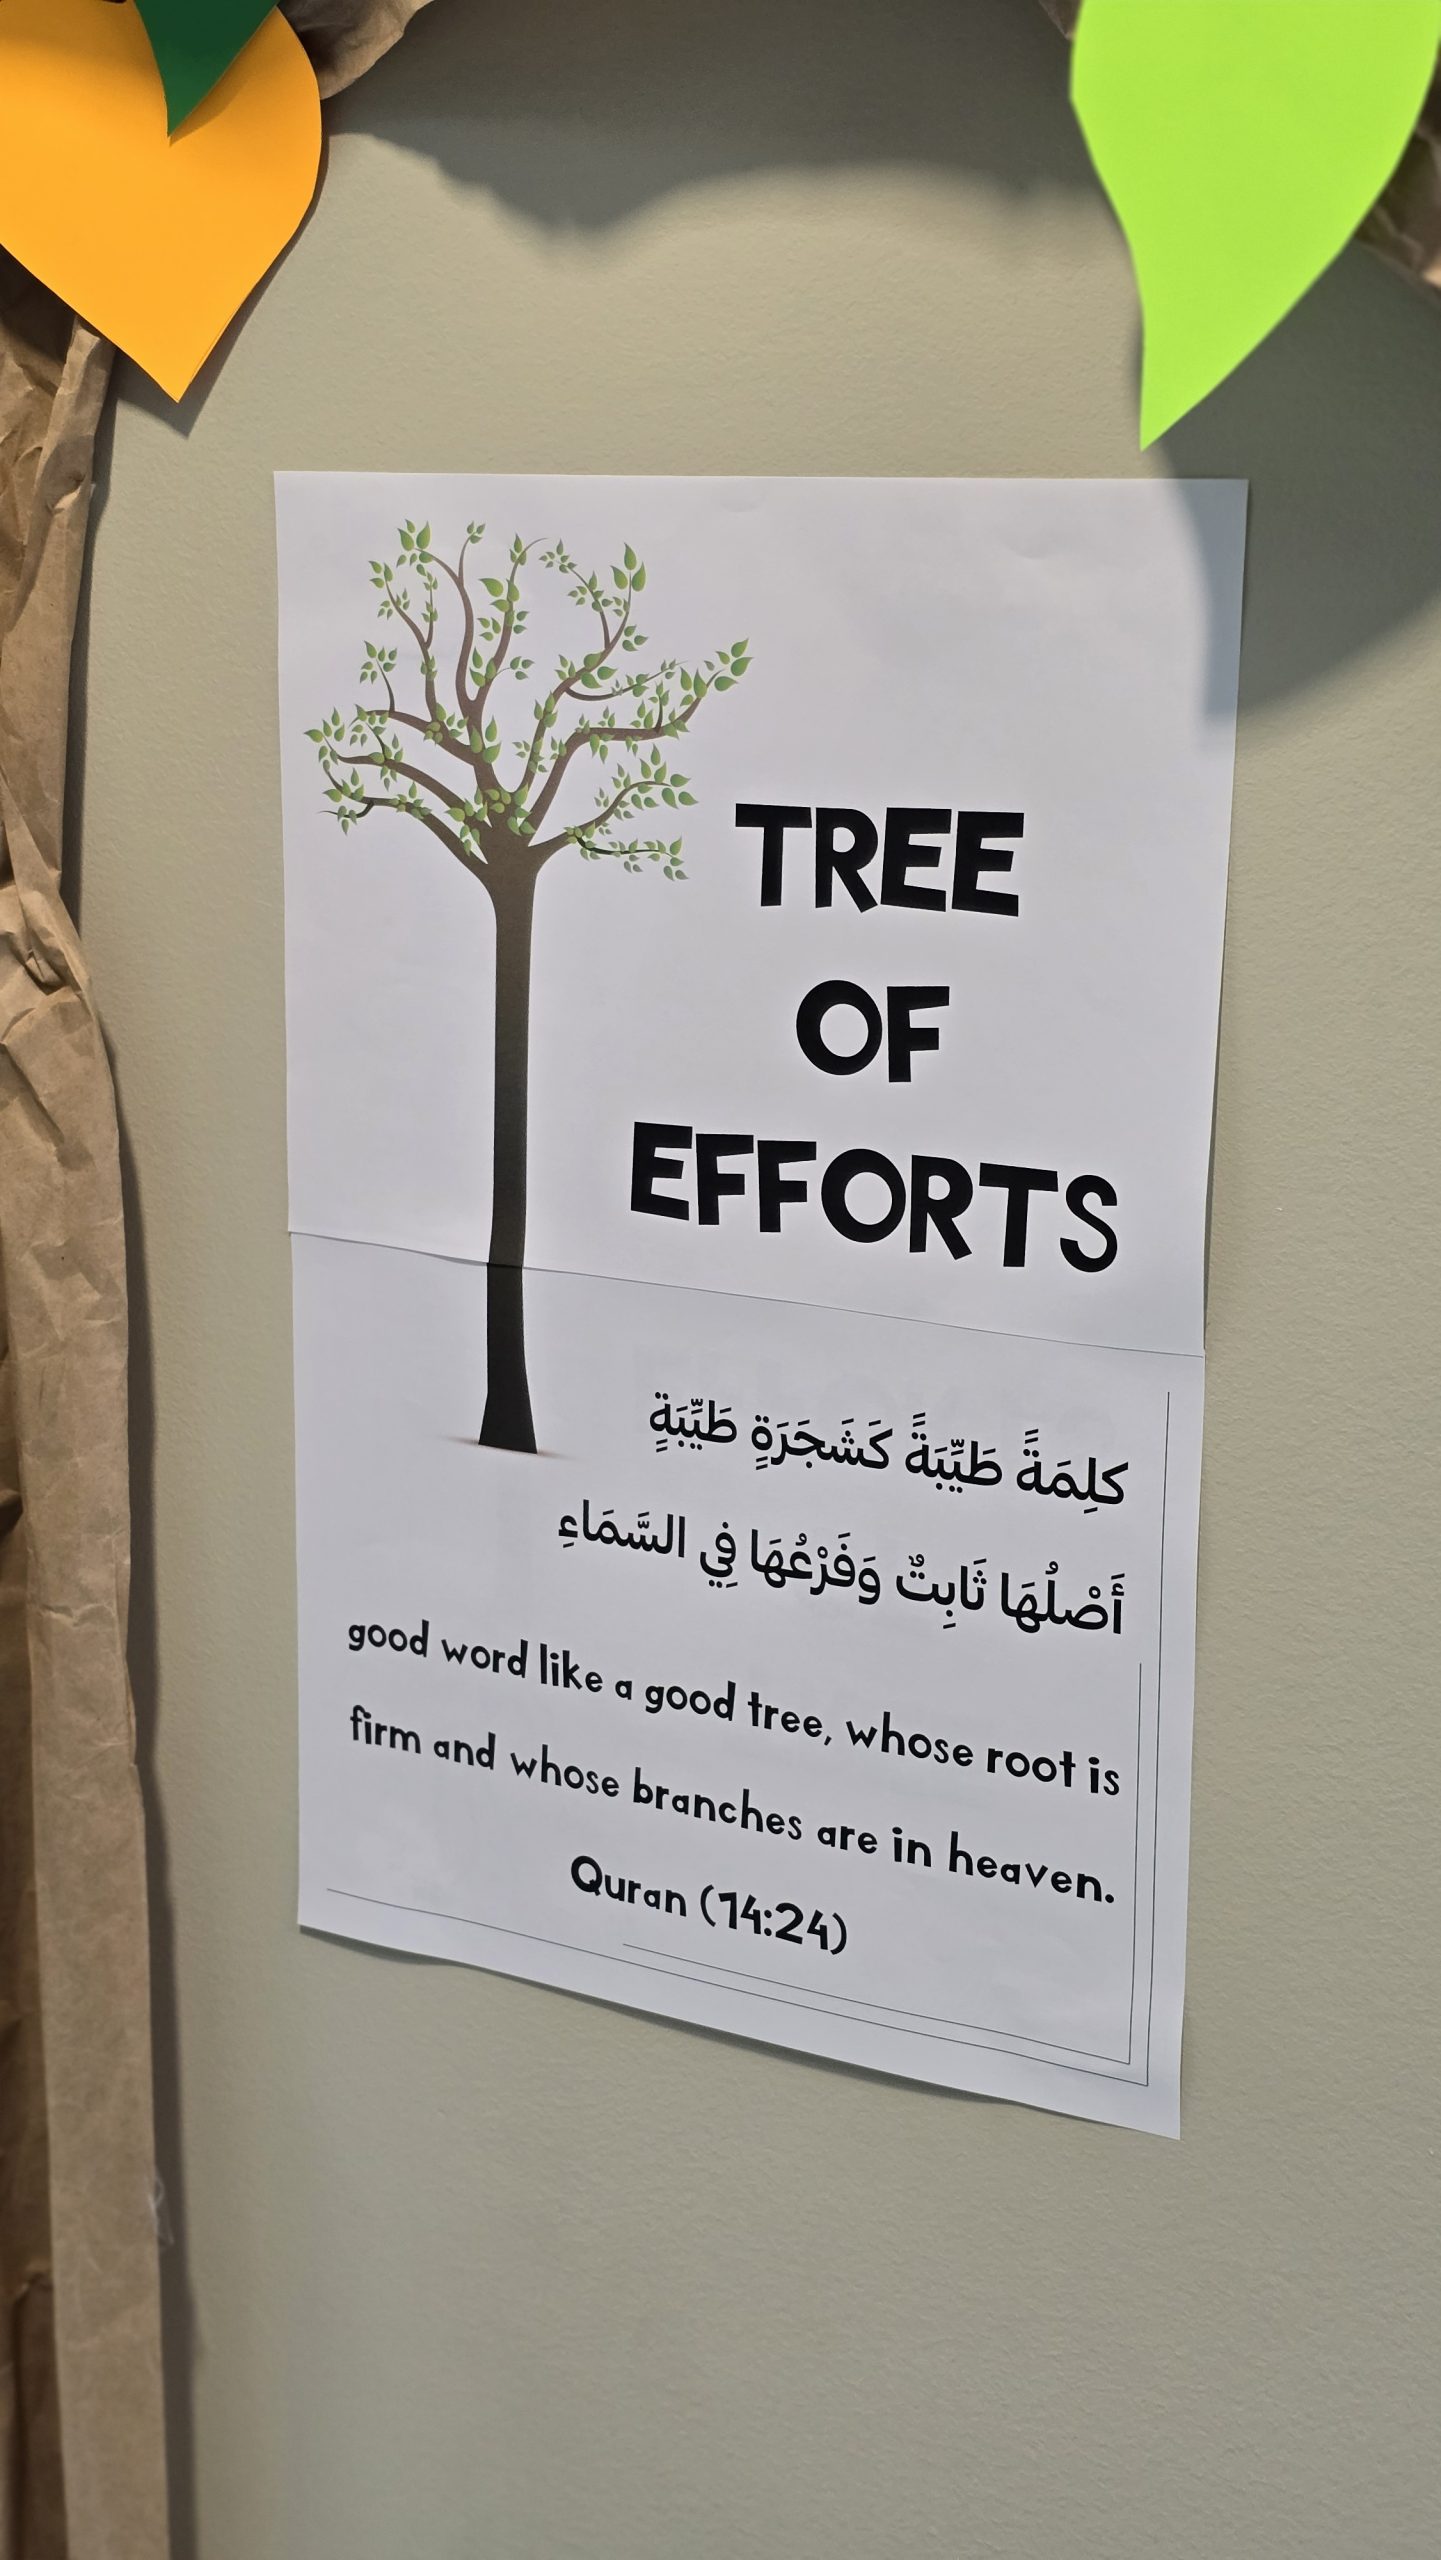 TREE
OF
EFFORTS
كلِمَةً طَيِّبَةً كَشَجَرَةٍ طَيِّبَةٍ
أَصْلُهَا ثَابِتٌ وَفَرْعُهَا فِي السَّمَاءِ
good word like a good tree, whose root is
firm and whose branches are in heaven.
Quran (14:24)